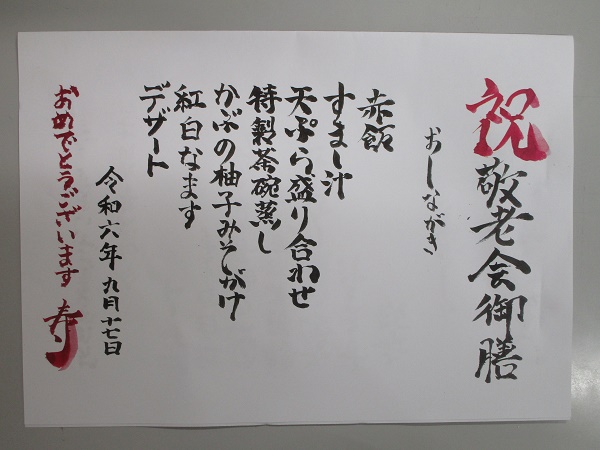 祝敬老会御膳
おしながき
赤飯
すまし汁
天ぷら盛り合わせ
特製茶碗蒸し
かぶの柚子みそがけ
紅白なます
デザート
令和六年九月十七日
おめでとうございます 寿